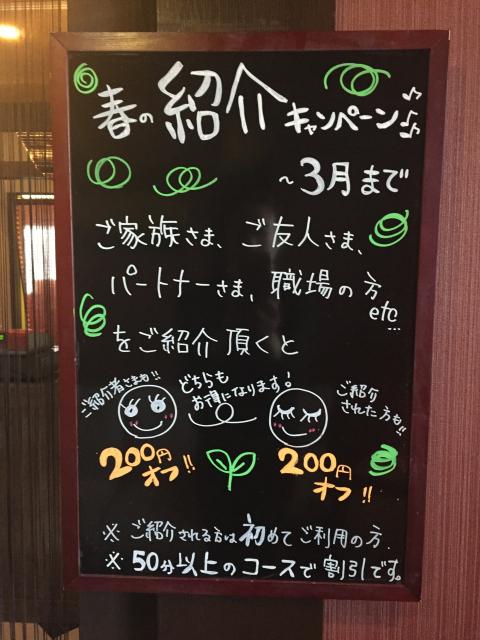 春の紹介キャンペーン♪
～3月まで
ご家族さま、ご友人さま、
パートナーさま、職場の方
etc...
をご紹介頂くと
ご紹介者さまも!!
どちらも
お得になります!
ご紹介
された方も!!
200円
オフ!!
200円
オフ!!
※ ご紹介される方は初めてご利用の方.
※ 50分以上のコースで割引です。